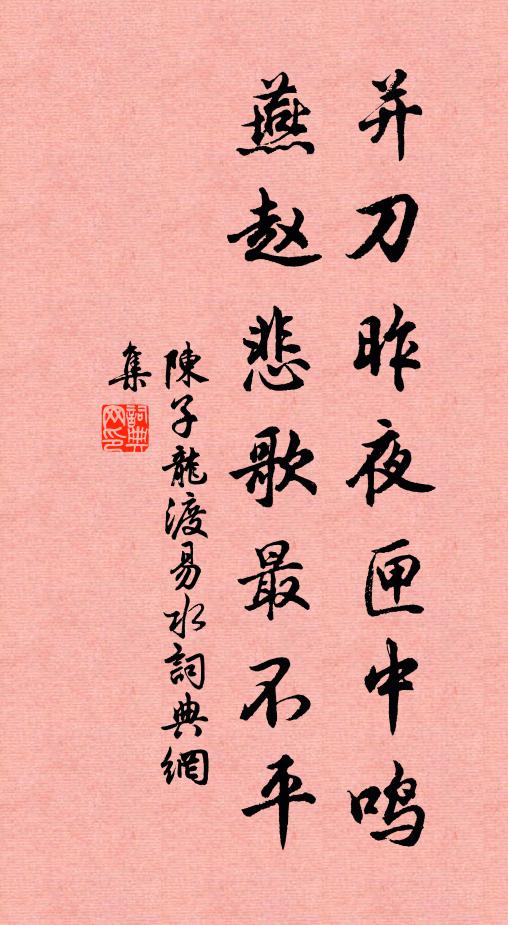 并刀昨夜匣中鸣
燕赵悲歌最不平
陳子龍渡易水詞典網
集
詞典网印